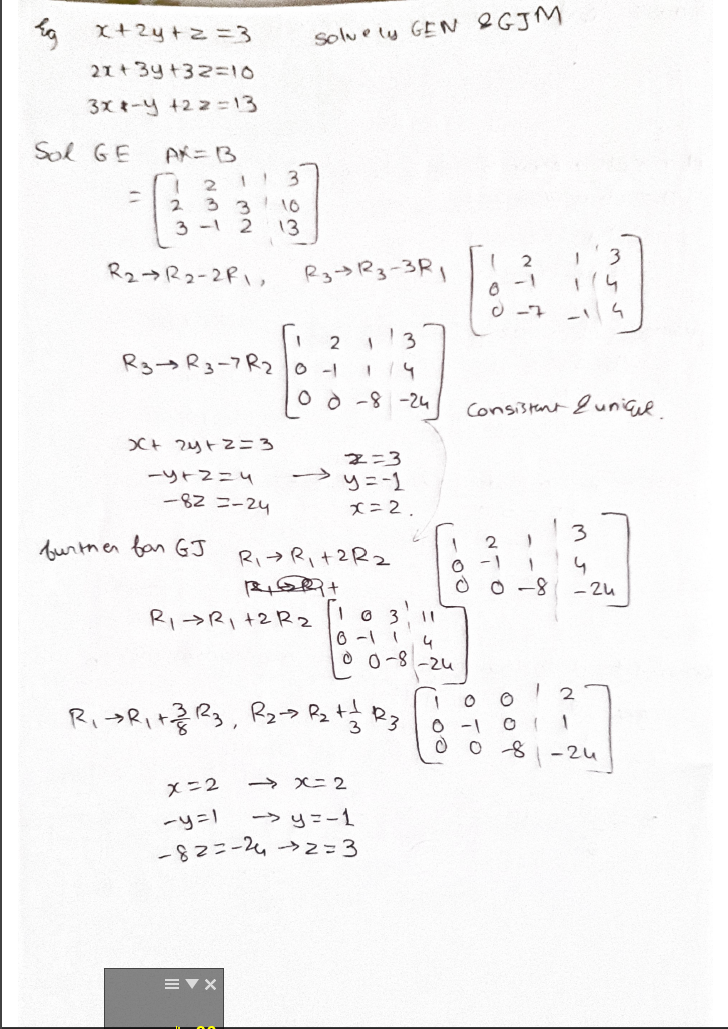 Eg x+2y+z=3 solve by GEM & GJM
2x+3y+3z=10
3x-y+2z=13
Sol GE AX=B
= [1 2 1 | 3
2 3 3 | 10
3 -1 2 | 13]
R2→R2-2R1, R3→R3-3R1 [1 2 1 | 3
0 -1 1 | 4
0 -7 -1 | 4]
R3→R3-7R2 [1 2 1 | 3
0 -1 1 | 4
0 0 -8 | -24]
consistant & unique.
x+2y+z=3
-y+z=4
-8z=-24
→ z=3
y=-1
x=2.
further for GJ R1→R1+2R2 [1 2 1 | 3
0 -1 1 | 4
0 0 -8 | -24]
R1→R1+2R2 [1 0 3 | 11
0 -1 1 | 4
0 0 -8 | -24]
R1→R1+3/8 R3, R2→R2+1/3 R3 [1 0 0 | 2
0 -1 0 | 1
0 0 -8 | -24]
x=2 → x=2
-y=1 → y=-1
-8z=-24 → z=3